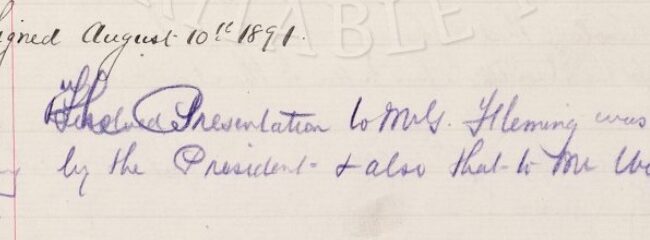 igned August 10th 1891.
The Presentation to Mrs. Fleming was
by the President & also that to Mr